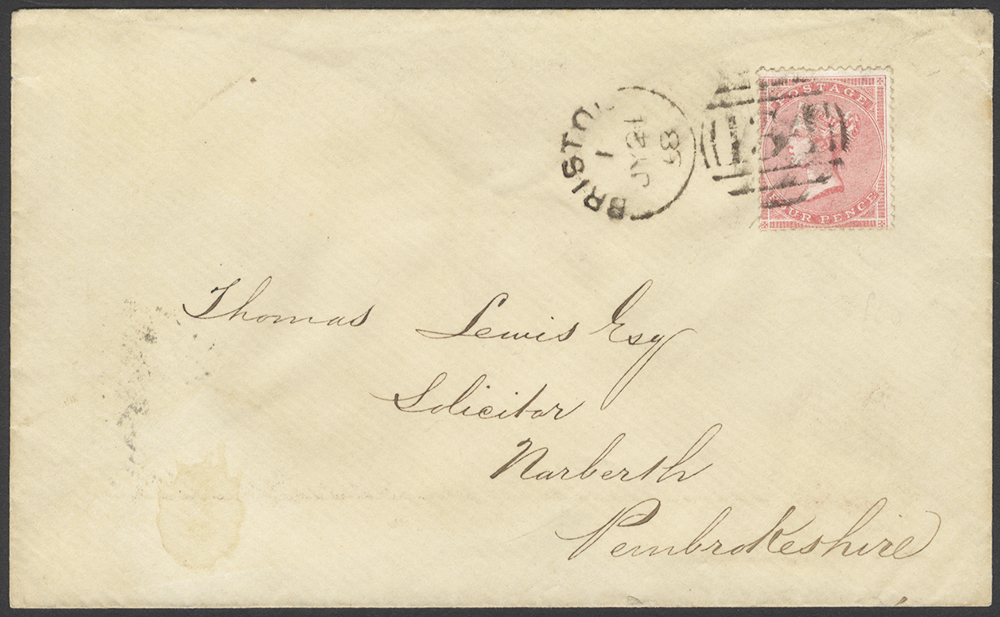 BRISTOL
1
JY 21
58
POSTAGE
FOUR PENCE
Thomas Lewis Esq
Solicitor
Narberth
Pembrokeshire